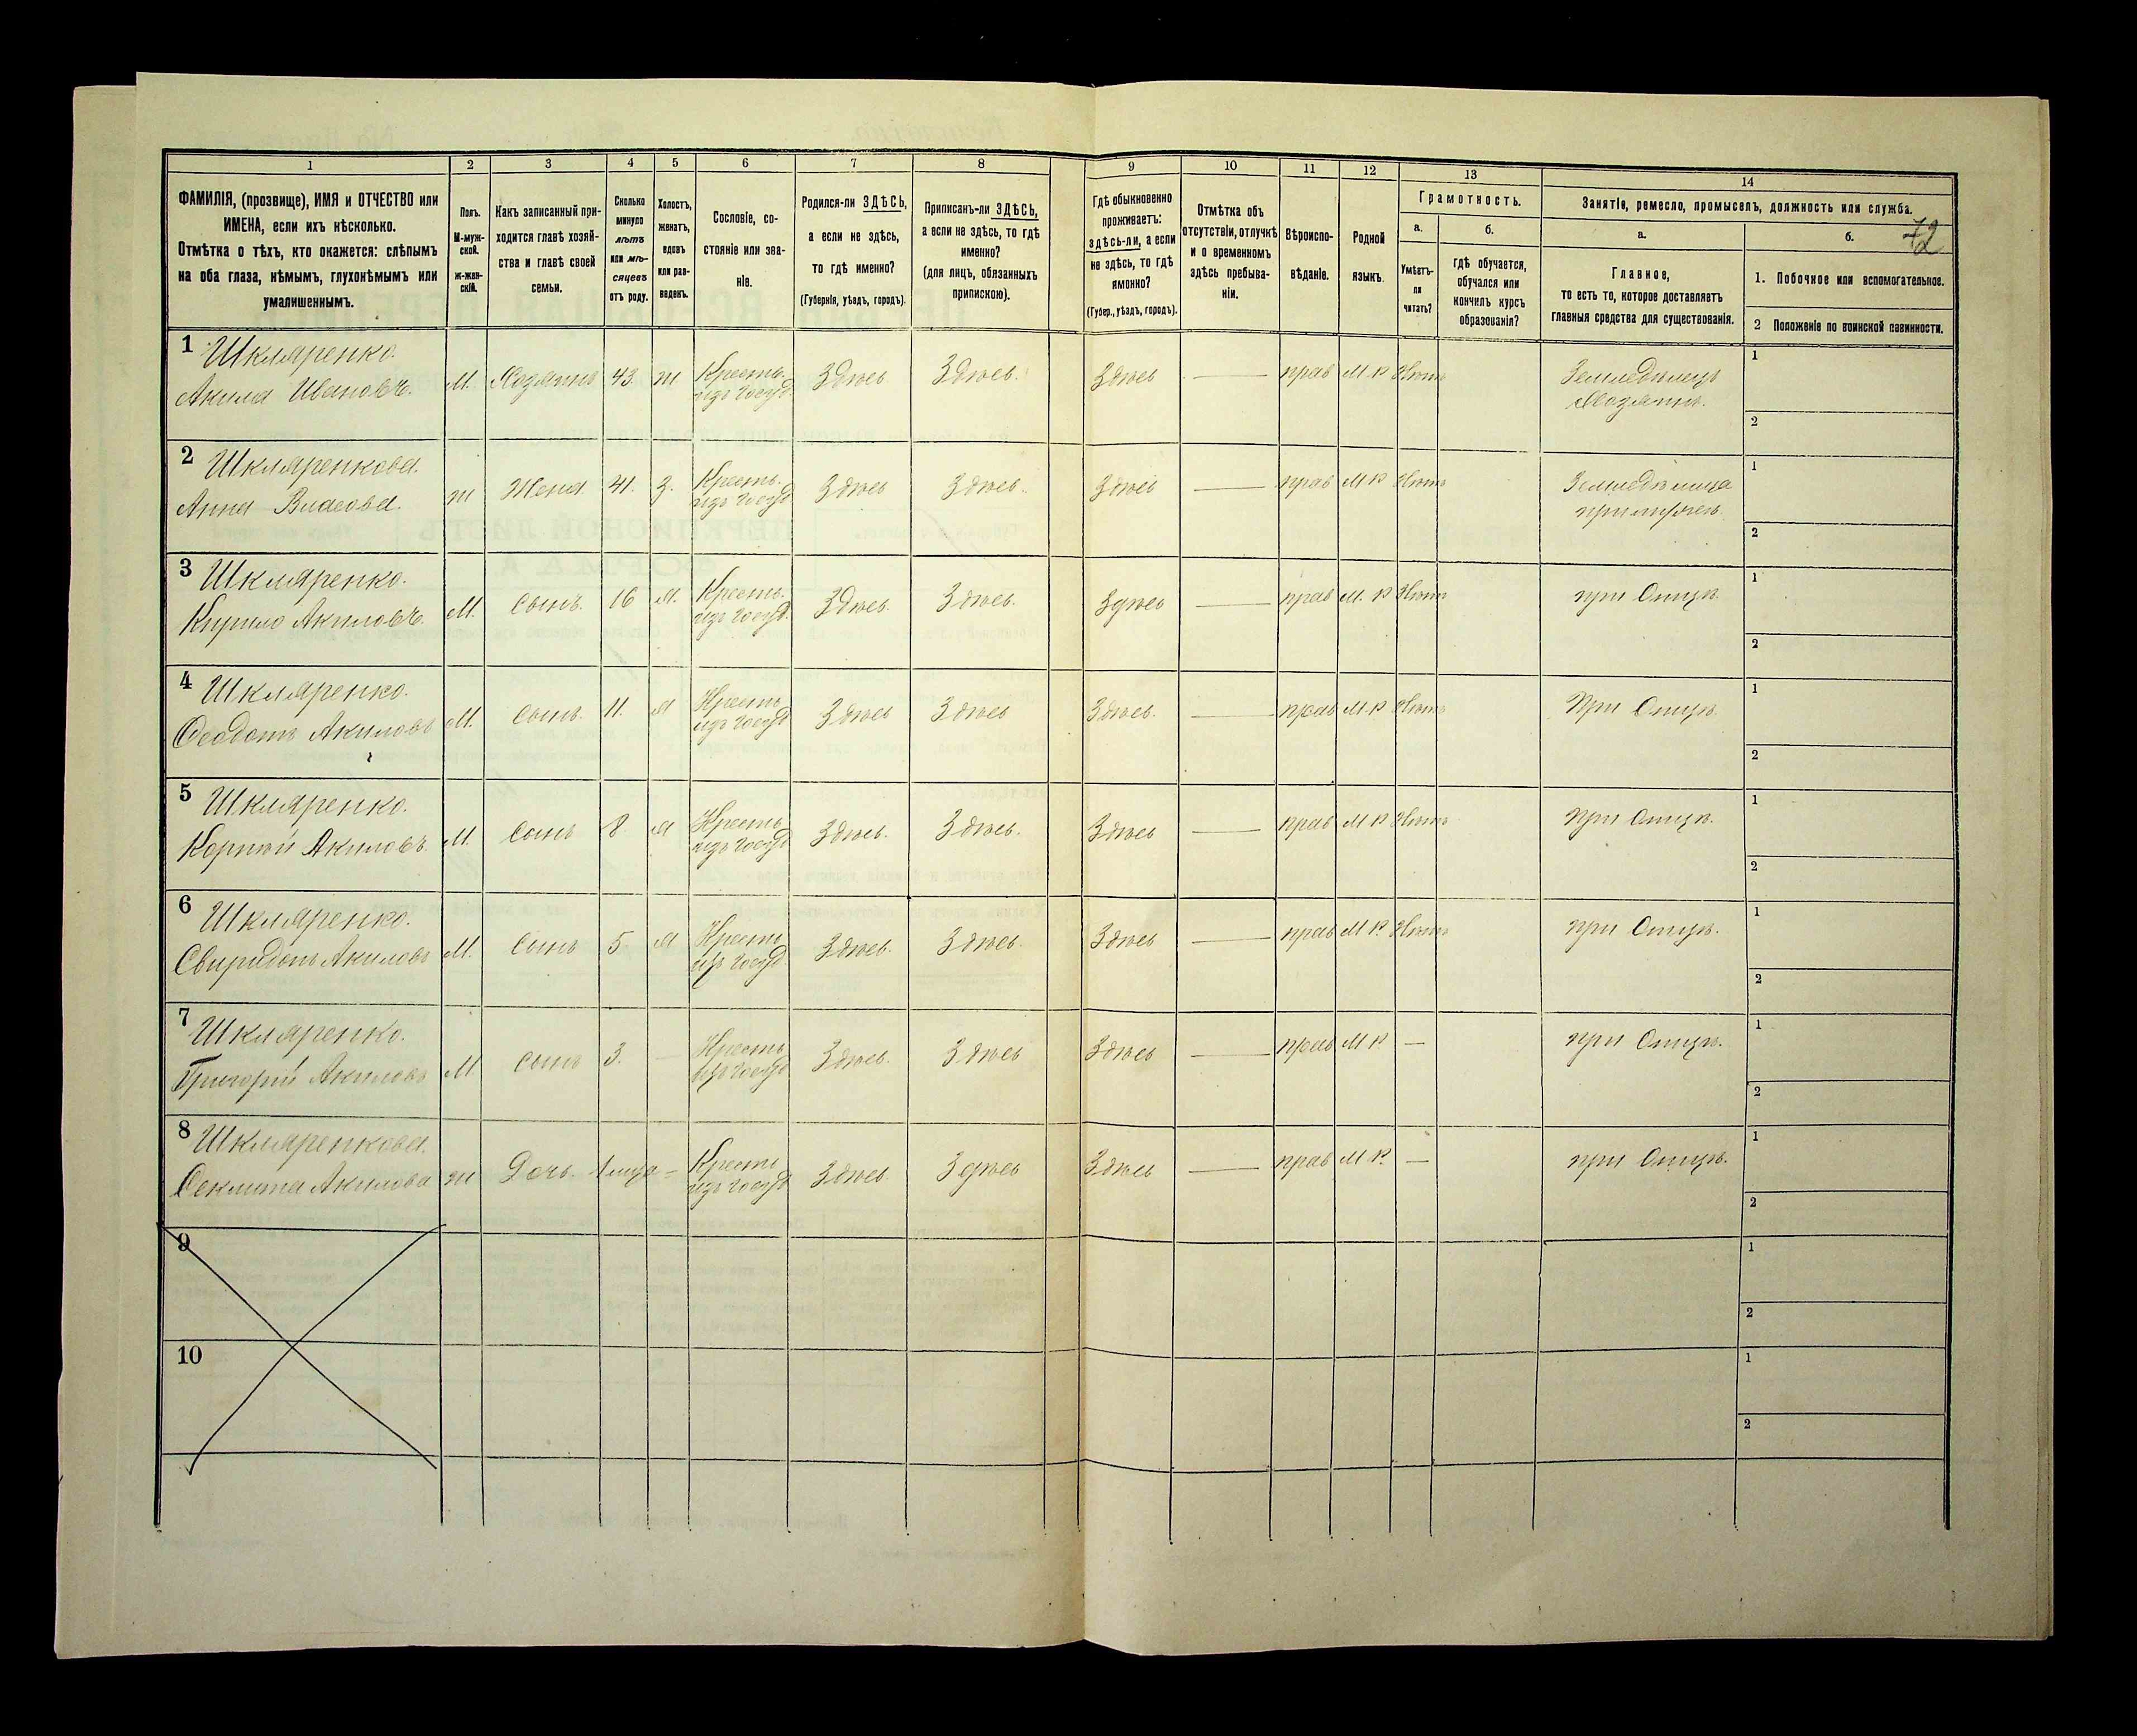 1 2 3 4 5 6 7 8 9 10 11 12 13 14
ФАМИЛІЯ, (прозвище), ИМЯ и ОТЧЕСТВО или
ИМЕНА, если ихъ нѣсколько.
Отмѣтка о тѣхъ, кто окажется: слѣпымъ
на оба глаза, нѣмымъ, глухонѣмымъ или
умалишеннымъ.
Полъ.
М-муж-
ской.
ж-жен-
скій.
Какъ записанный при-
ходится главѣ хозяй-
ства и главѣ своей
семьи.
Сколько
минуло
лѣтъ
или мѣ-
сяцевъ
отъ роду.
Холостъ,
женатъ,
вдовъ
или раз-
веденъ.
Сословіе, со-
стояніе или зва-
ніе.
Родился-ли ЗДѢСЬ,
а если не здѣсь,
то гдѣ именно?
(Губернія, уѣздъ, городъ).
Приписанъ-ли ЗДѢСЬ,
а если не здѣсь, то гдѣ
именно?
(для лицъ, обязанныхъ
припискою).
Гдѣ обыкновенно
проживаетъ:
здѣсь-ли, а если
не здѣсь, то гдѣ
именно?
(Губер., уѣздъ, городъ).
Отмѣтка объ
отсутствіи, отлучкѣ
и о временномъ
здѣсь пребыва-
ніи.
Вѣроиспо-
вѣданіе.
Родной
языкъ.
Грамотность.
а.
Умѣетъ-
ли
читать?
б.
гдѣ обучается,
обучался или
кончилъ курсъ
образованія?
Занятіе, ремесло, промыселъ, должность или служба.
72
а.
Главное,
то есть то, которое доставляетъ
главныя средства для существованія.
б.
1. Побочное или вспомогательное.
2 Положеніе по воинской повинности.
1 Шкляренко.
Акила Ивановъ. М. Хозяинъ 43. ж Крестъ. изъ госуд. Здѣсь Здѣсь. Здѣсь — прав М.Р Нѣтъ Земледѣлецъ 1
Хозяинъ. 2
2 Шкляренкова.
Анна Власова. ж Жена 41. З. Крестъ. изъ госуд Здѣсь Здѣсь. Здѣсь — прав М Р Нѣтъ Земледѣлица 1
при мужѣ 2
3 Шкляренко.
Кирило Акиловъ. М. Сынъ. 16 Крестъ. изъ госуд. Здѣсь. Здѣсь. Здѣсь — прав М. Р Нѣтъ при Отцѣ 1
2
4 Шкляренко.
Феодотъ Акиловъ М. Сынъ. 11. Крестъ изъ госуд Здѣсь Здѣсь Здѣсь. — прав М.Р Нѣтъ При Отцѣ 1
2
5 Шкляренко.
Корнѣй Акиловъ. М. Сынъ 8 Крестъ изъ госуд Здѣсь. Здѣсь. Здѣсь — прав М Р Нѣтъ При Отцѣ. 1
2
6 Шкляренко.
Свиридонъ Акиловъ М. Сынъ 5 Крестъ изъ госуд. Здѣсь. Здѣсь. Здѣсь — прав М Р. Нѣтъ при Отцѣ. 1
2
7 Шкляренко.
Григорій Акиловъ М Сынъ 3. — Крестъ изъ госуд Здѣсь. Здѣсь Здѣсь — прав М Р — при Отцѣ. 1
2
8 Шкляренкова.
Феклита Акилова ж Дочь. Крестъ изъ госуд Здѣсь. Здѣсь Здѣсь — прав М Р. — при Отцѣ. 1
2
9 1
2
10 1
2